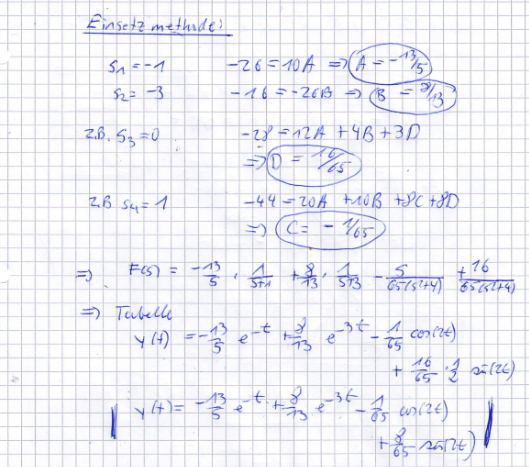 Einsetzmethode:
S₁ = -1    -26 = 10A ⇒ A = -13/5
S₂ = -3    -16 = -26B ⇒ B = 8/13
z.B. S₃ = 0    -28 = 12A + 4B + 3D
⇒ D = 16/65
z.B. S₄ = 1    -44 = 20A + 10B + 8C + 8D
⇒ C = -1/65
⇒ F(s) = -13/5 · 1/(s+1) + 8/13 · 1/(s+3) - s/(65(s²+4)) + 16/(65(s²+4))
⇒ Tabelle
y(t) = -13/5 e^(-t) + 8/13 e^(-3t) - 1/65 cos(2t)
+ 16/65 · 1/2 sin(2t)
y(t) = -13/5 e^(-t) + 8/13 e^(-3t) - 1/65 cos(2t)
+ 8/65 sin(2t)